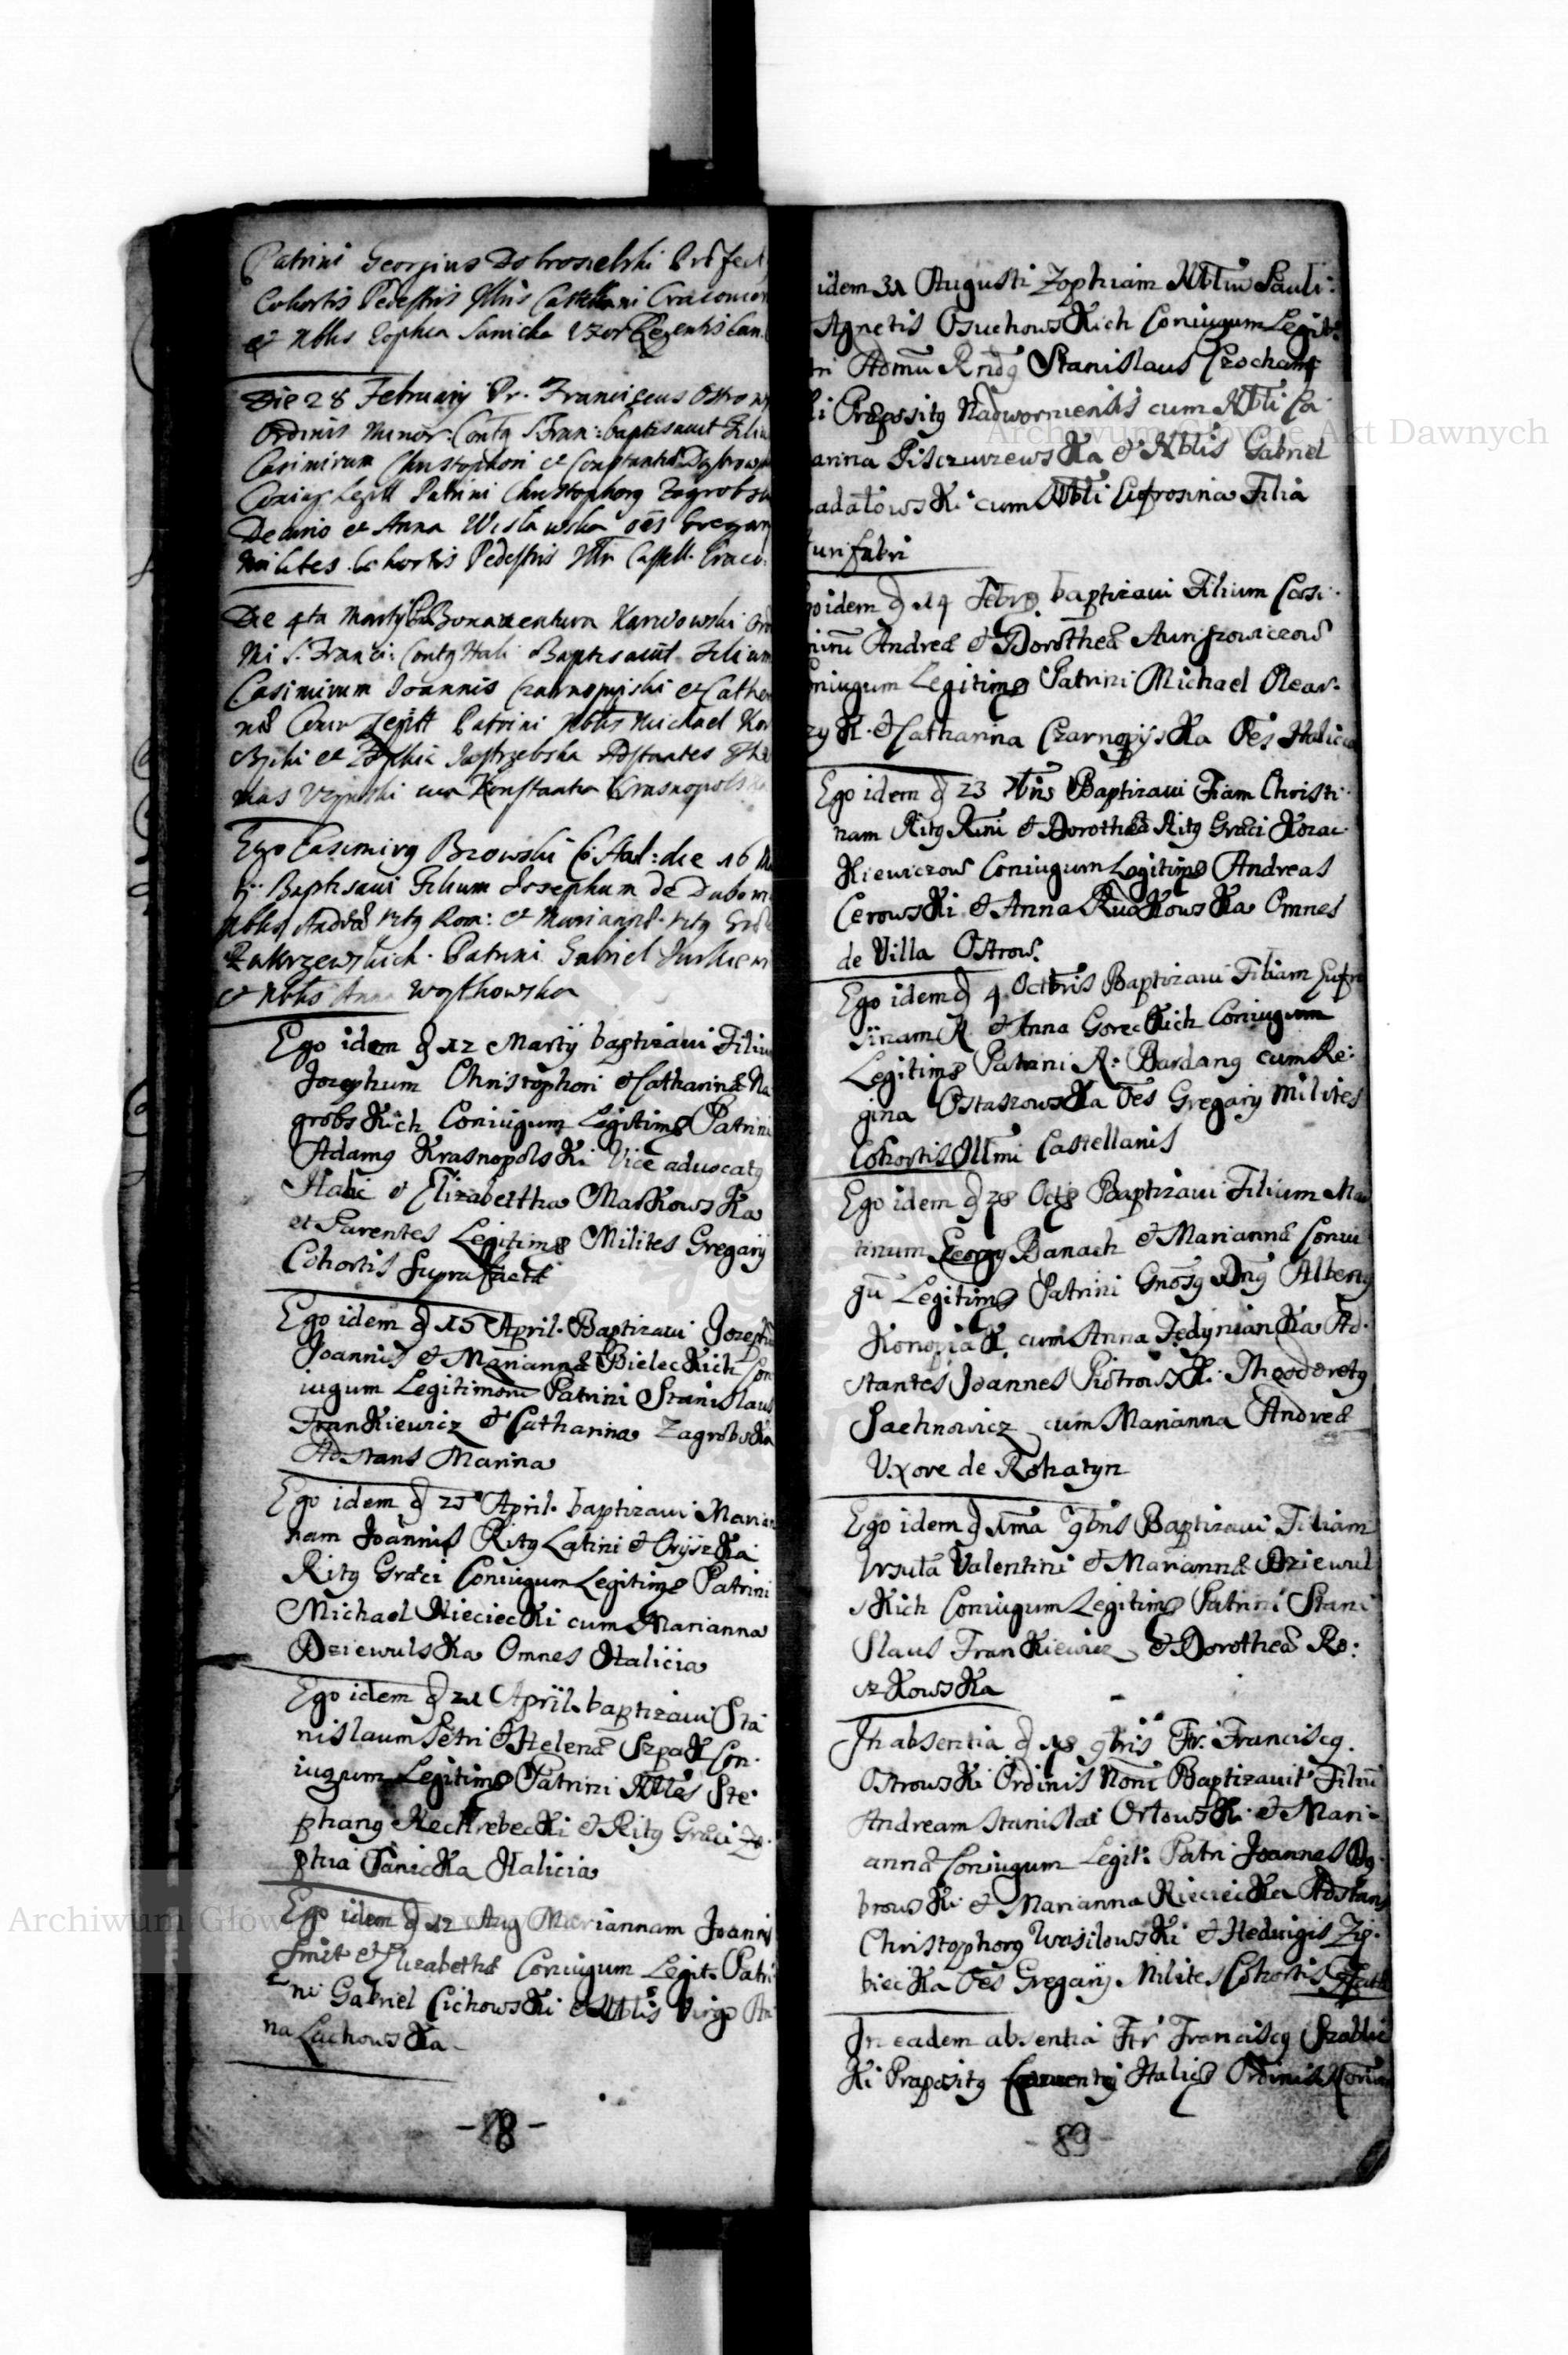 Patrini Georgius Dobrosielski Præfect
Cohortis Pedestris Illris Castellani Cracovien
et Nblis Sophia Sanicka Uxor Regentis Can
Die 28 February Pr. Franciscus Ostrows
Ordinis Minor. Contg S Fran: baptisavit Filiu
Casimirum Christophori et Constantiæ Dąbrows
Coniug Legitt Patrini Christophorg Zagrobsk
Decurio et Anna Wisławska oẽs Gregary
milites Cohortis Pedestris Illr Castell. Craco.
Die 4ta Martij Bonaventura Karwowski Ord
Mi S. Franci: Contg Hali Baptisavit Filium
Casimirum Joannis Czarnopijski et Cathe
næ Coniu Legitt Patrini Nblis Michael
et Zophia Jastrzebska Adstantes Tho
mas cum Konstantia Krasnopolska
Ego Casimirg Brzowski C: Hal: die 16 Ma
Baptisavi Filium Josephum de Dubow
Nblis Andreæ ritg Rom: et Mariannæ ritg Græ
Zakrzewskich. Patrini Gabriel Jurkiew
et Nblis Anna Woytkowska
Ego idem d 12 Martij baptizavi Filiu
Jozephum Christophori et Catharinæ Na
grobskich Coniugum Legitimo Patrini
Adamg Krasnopolski Vice advocatg
Halic et Elizabettha Markowska
et Parentes Legitimo Milites Gregarij
Cohortis Suprafactæ
Ego idem d 15 April. Baptizavi Jozephu
Joannis et Mariannæ Bieleckich Con
iugum Legitimorũ Patrini Stanislaus
Frankiewicz et Catharina Zagrobska
Adstans Marina
Ego idem d 25 April. baptizavi Marian
nam Joannis Ritg Latini et Oryszka
Ritg Græci Coniugum Legitimo Patrini
Michael Nieciecki cum Marianna
Dziewulska Omnes Halicia
Ego idem d 21 April. baptizavi Sta
nislaum Petri et Helenæ Szpak Con.
iugum Legitimo Patrini Nbles Ste
phang Nechrebecki et Ritg Græci Zo
phia Sanicka Halicia
Ego idem d 12 Aug Mariannam Joannis
Smit et Elizabethæ Coniugum Legit. Patri
ni Gabriel Cichowski et Nblis Virgo An
na Lachowska
- 88 -
idem 31 Augusti Zophiam Nbliũ Pauli:
Agnetis Osuchowskich Coniugum Legit:
ri Admũ Rndg Stanislaus Czochans
li Præpositg Nadworniensis cum Nbli Ca
arina Pisczurzewska et Nblis Gabriel
adałowski cum Nbli Eufrosina Filia
urifabri
o idem d 14 7bris baptizavi Filium Casi.
mirũ Andreæ et Dorotheæ Auriszowiczow
niugum Legitimo Patrini Michael Olear.
zyk. et Catharina Czarnopijska Oẽs Halicia
Ego idem d 23 7bris Baptizavi Fiam Christi
nam Ritg Rmi et Dorotheæ Ritg Græci Kozac
kiewiczow Coniugum Legitimo Andreas
Cerowski et Anna Rudkowska Omnes
de Villa Ostrow.
Ego idem d 4 Octbris Baptizavi Filiam Eufro
sinam R. et Anna Goreckich Coniugum
Legitimo Patrini R: Bardang cum Re:
gina Ostaszowska Oẽs Gregarij Milites
Cohortis Illmi Castellanis
Ego idem d 28 Octo Baptizavi Filium Mar
tinum Georgy Banach et Mariannæ Coniu
gũ Legitimo Patrini Gnosg Dng Albertg
Konopiak cum Anna Fedynianka Ad.
stantes Joannes Piotrowski. Theodoretg
Sachnowicz cum Marianna Andreæ
Uxore de Rohatyn
Ego idem d 1ma 9bris Baptizavi Filiam
Ursulã Valentini et Mariannæ Dziewul
skich Coniugum Legitimo Patrini Stani
slaus Frankiewicz et Dorotheæ Ro:
szkowska
In absentia d 18 9bris Fr. Franciscg.
Ostrowski Ordinis Nom̃i Baptizavit Filiũ
Andream Stanislai Orłowski et Mari-
annæ Coniugum Legit: Patri Joannes Dą
browski et Marianna Nieciecka Adstans
Christophorg Wasilowski et Hedwigis Zię.
biecka Oẽs Gregarij Milites Cohortis
In eadem absentia Fr Franciscg Szablic
ki Præpositg Conventg Halicz Ordinis
- 89 -
Archiwum Główne Akt Dawnych